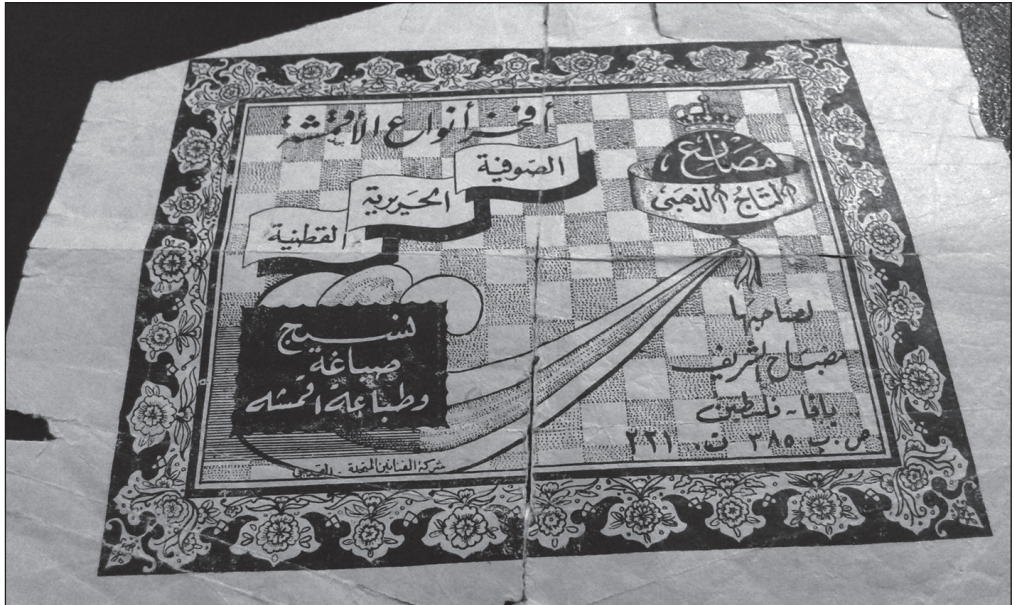 أفخر أنواع الأقمشة
الصوفية
الحريرية
القطنية
مصانع
التاج الذهبي
نسيج
صباغة
وطباعة اقمشه
لصاحبها
مصباح الشريف
يافا - فلسطين
ص. ب ٣٨٥ ت. ٢٢١
شركة الفنانين المتحدة